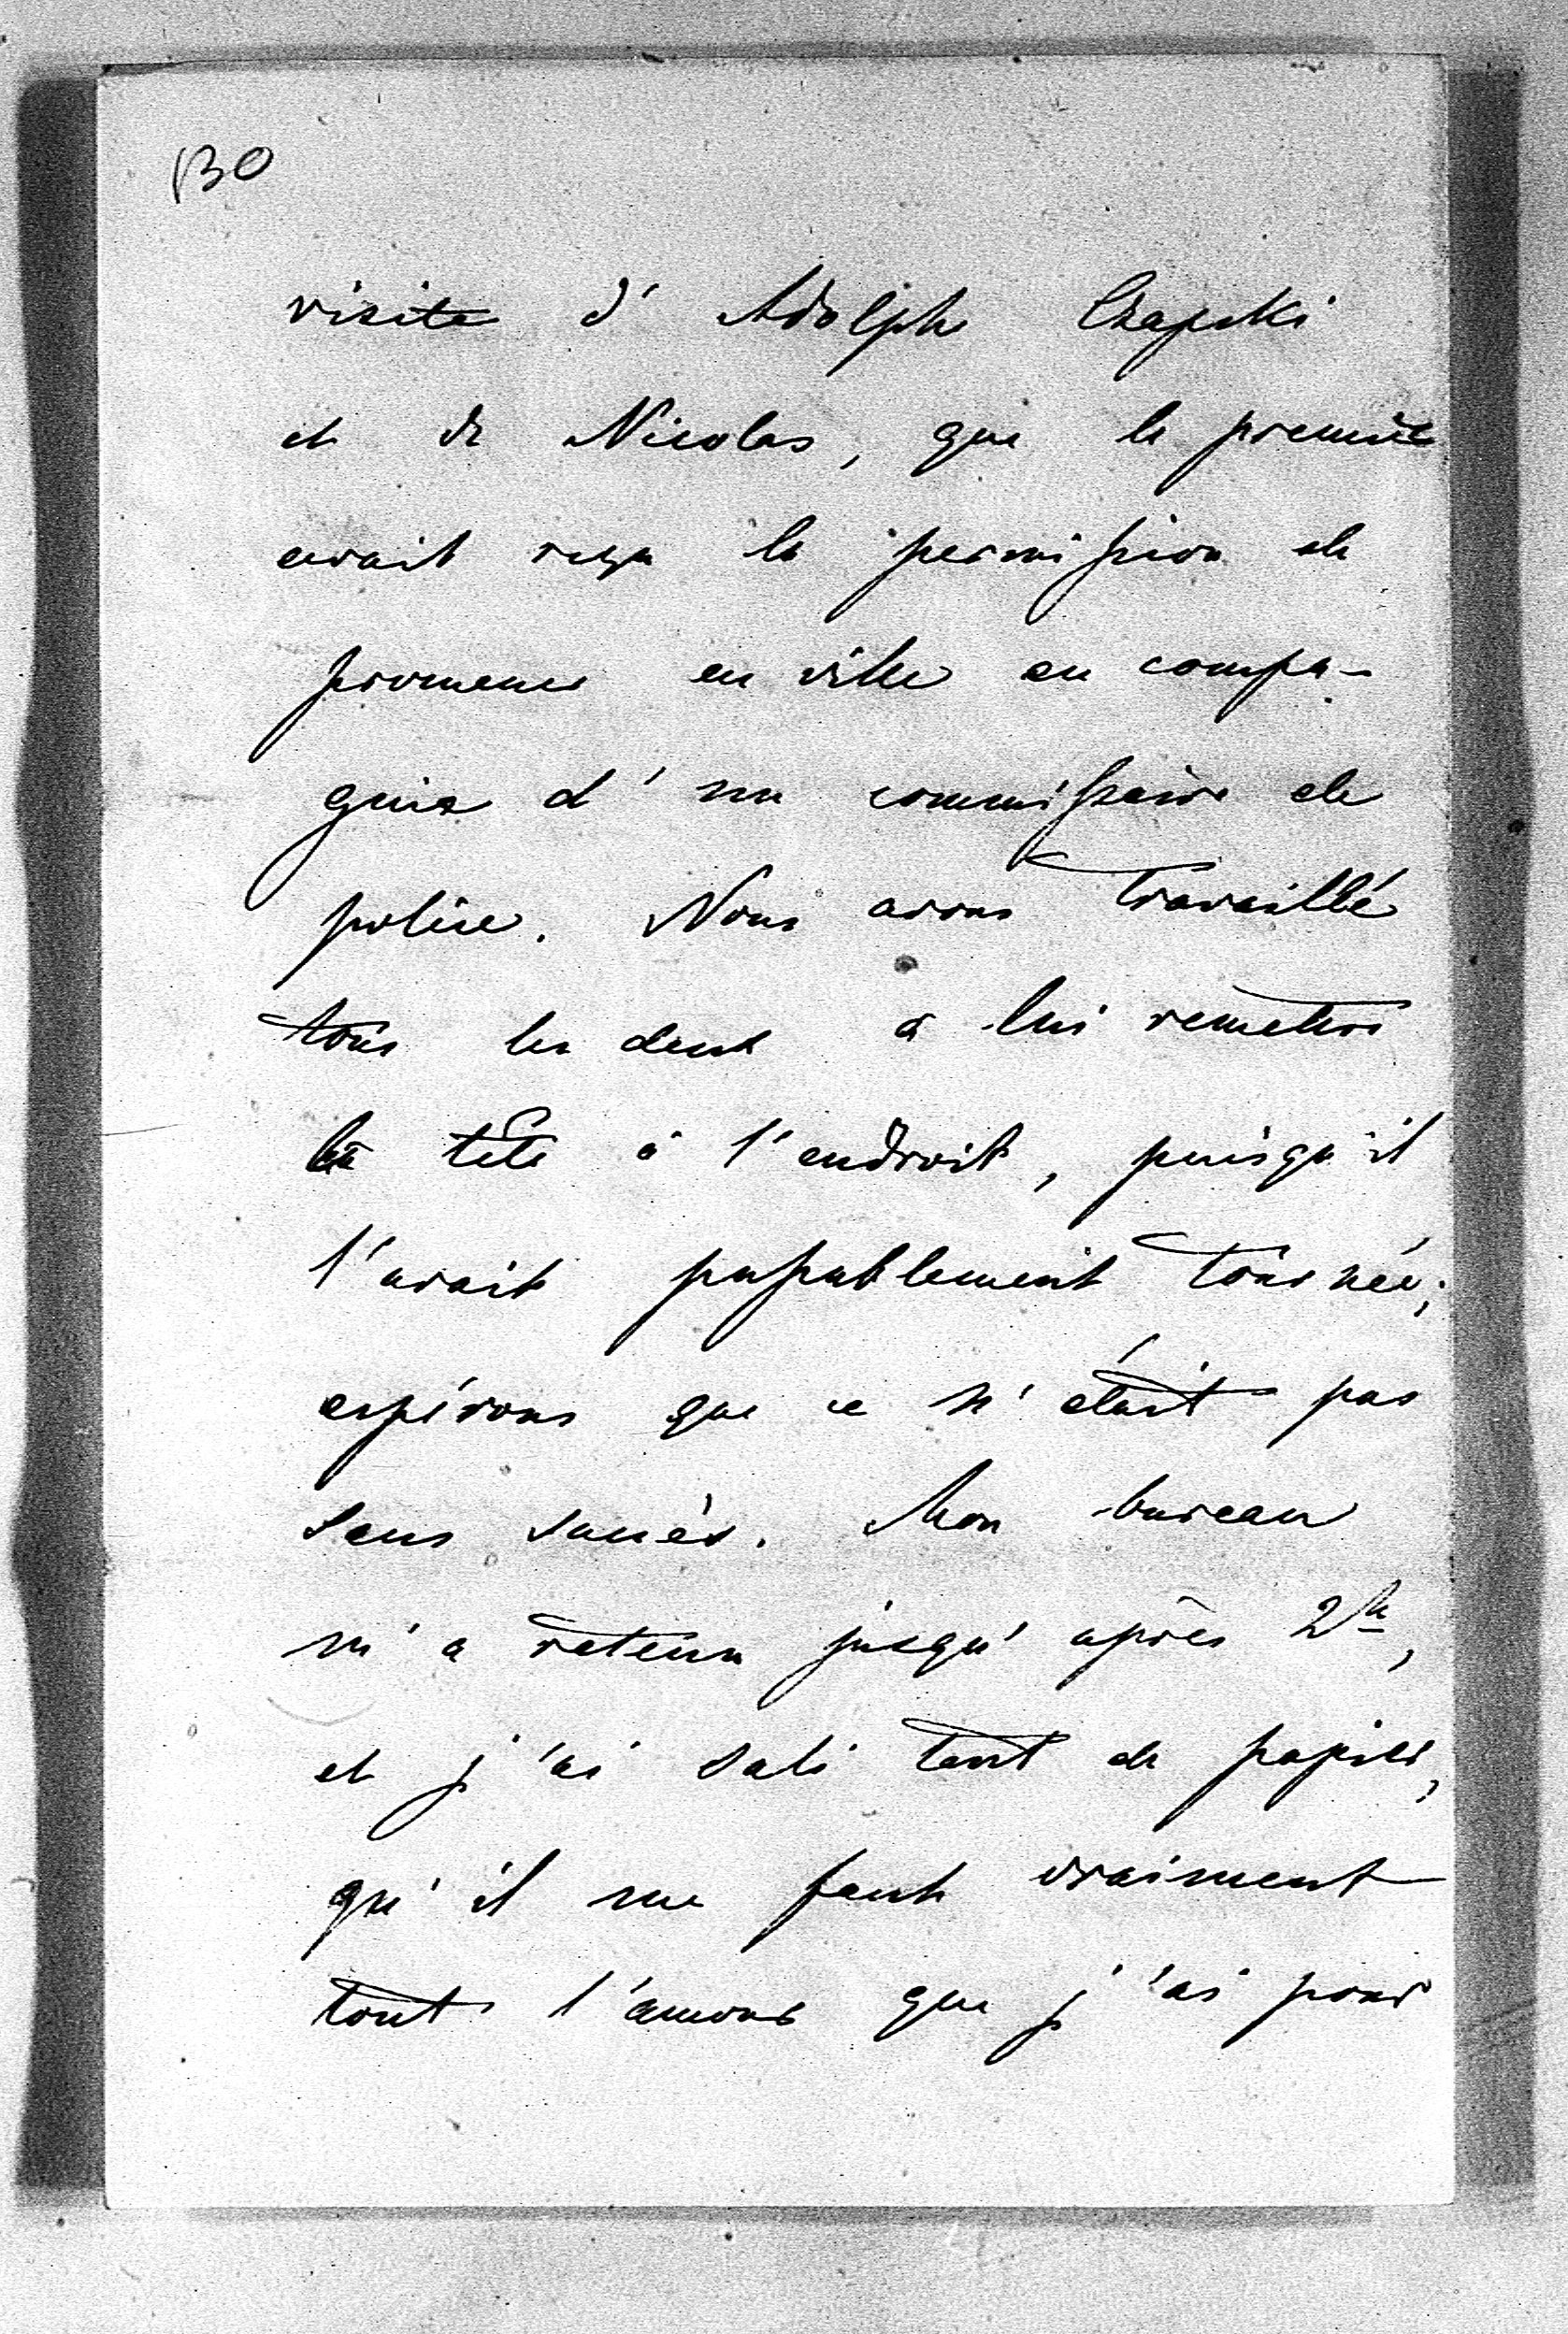 130
visite d'Adolphe Czapski
et de Nicolas, que le premier
avait reçu la permission de
promener en ville en compa-
gnie d'un commissaire de
police. Nous avons travaillé
tous les deux à lui remettre
la tête à l'endroit, puisqu'il
l'avait papablement tournée;
espérons que ce n'était pas
sans succès. Mon bureau
m'a retenu jusqu'après 2h,
et j'ai sali tant de papier,
qu'il me faut vraiment
tout l'amour que j'ai pour